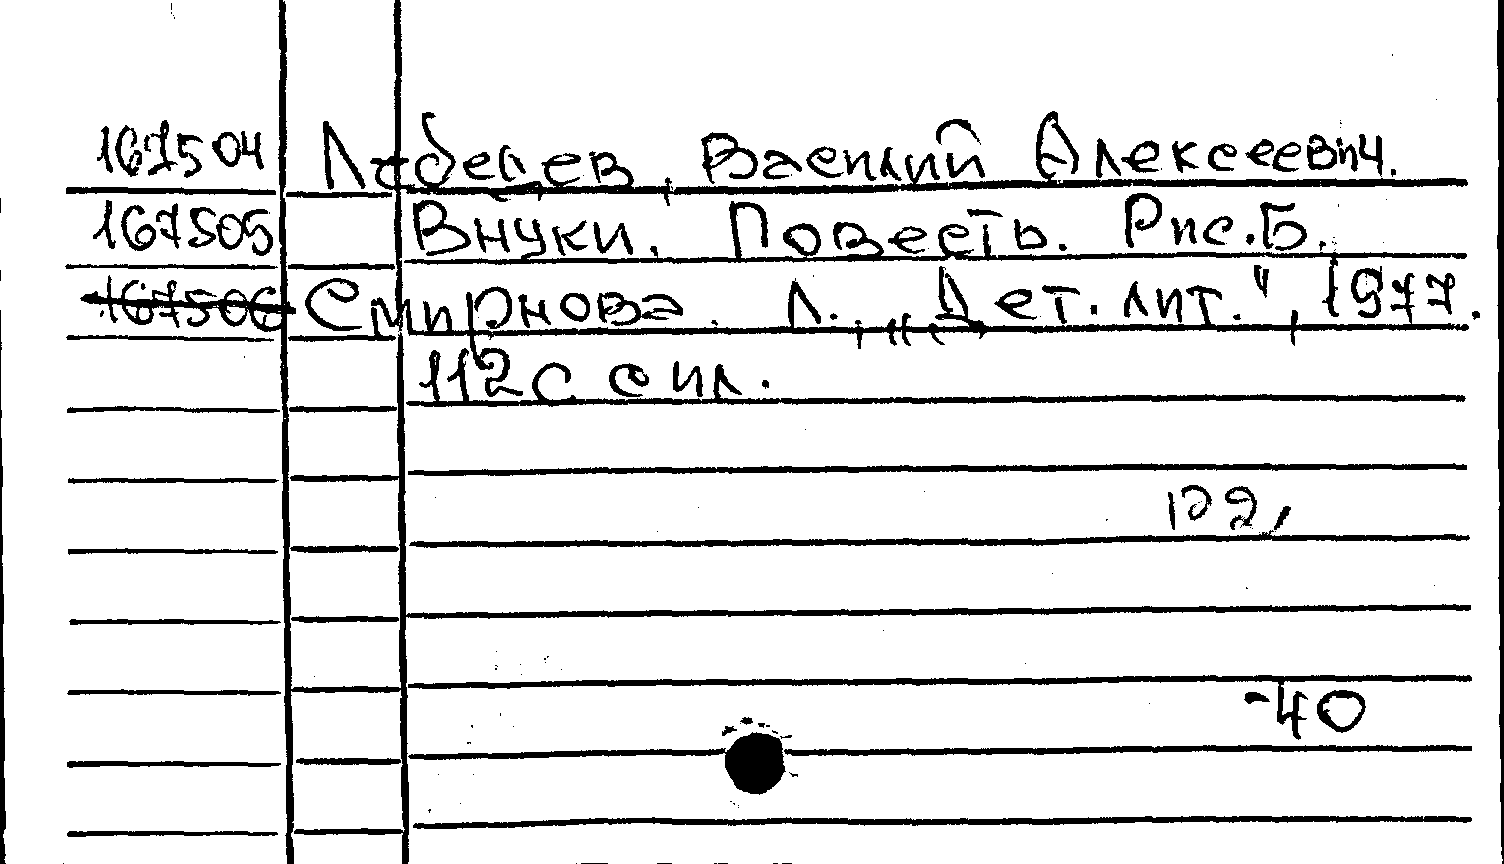 167504 Лебедев, Василий Алексеевич.
167505 Внуки. Повесть. Рис. Б.
167506 Смирнова. Л., „Дет. лит.", 1977.
112 с с ил.
р2,
-40